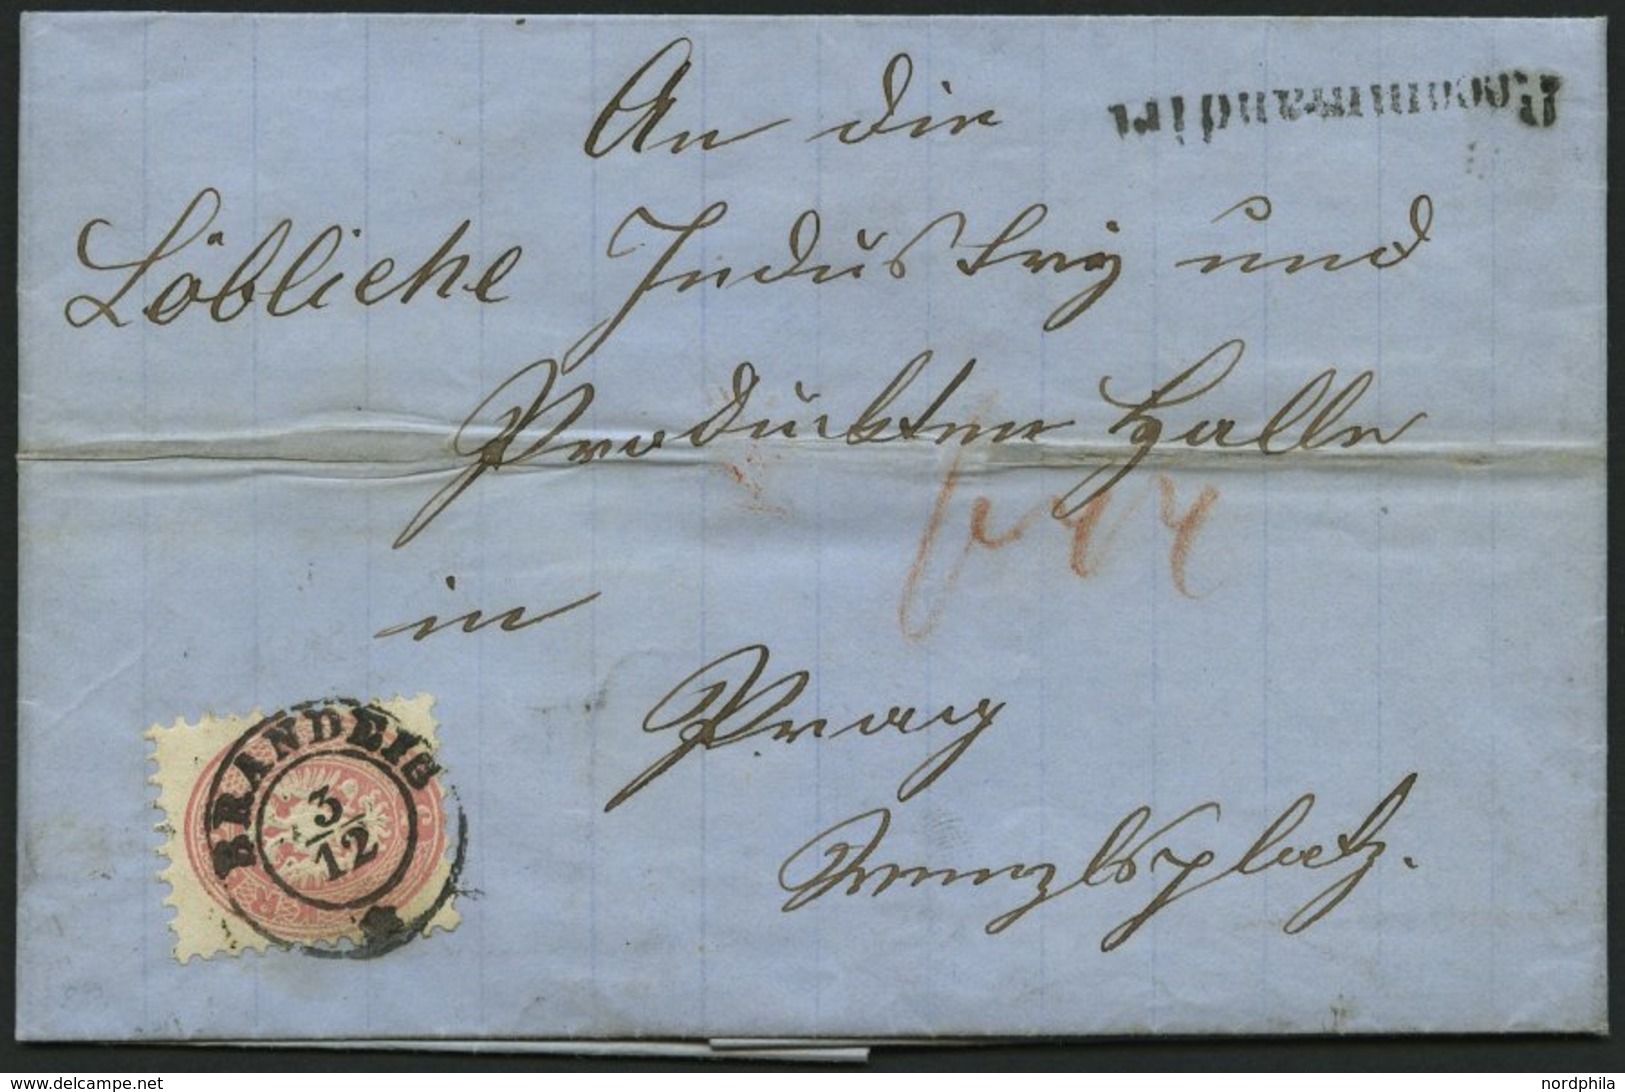 An die
Recommandirt
Löbliche Industrij und
Produkten Halle
in
Prag
Wenzlsplatz.
BRANDEIS
3
12
www.delcampe.net
nordphila